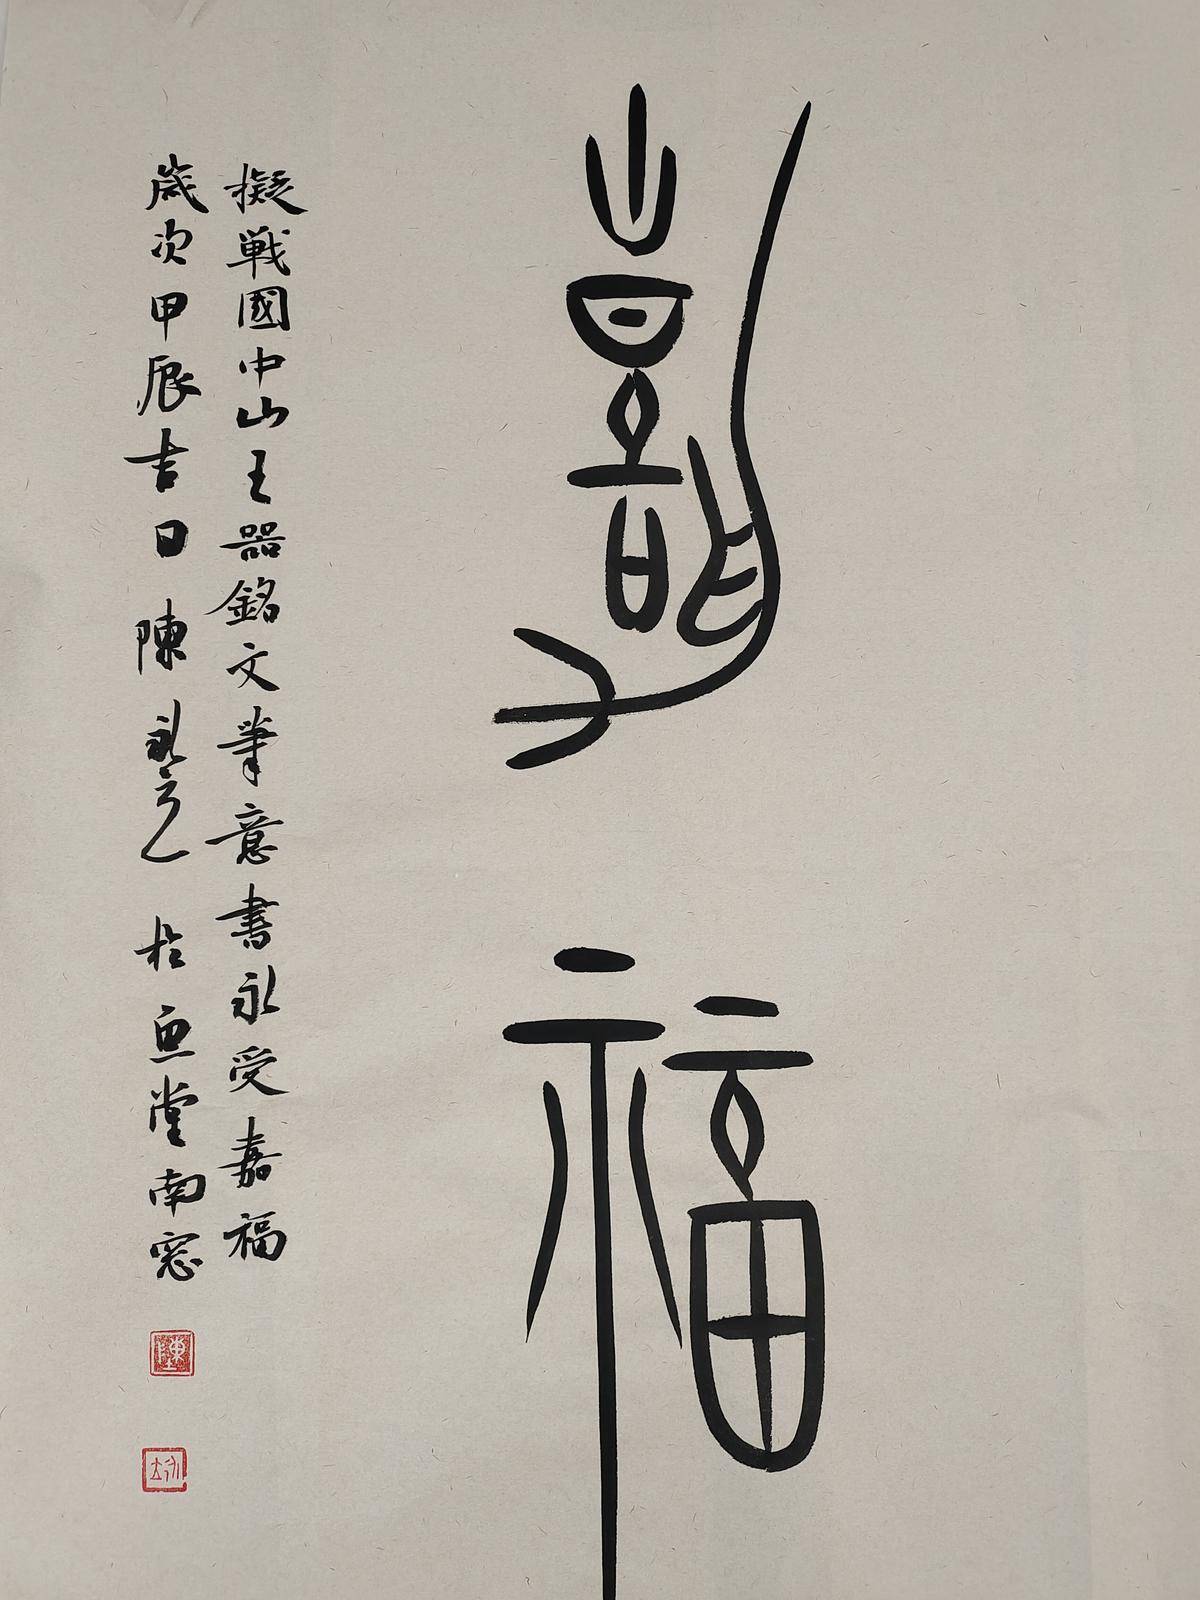 嘉福
擬戰國中山王器銘文筆意書永受嘉福
歲次甲辰吉日陳永亮於魚堂南窓
陳